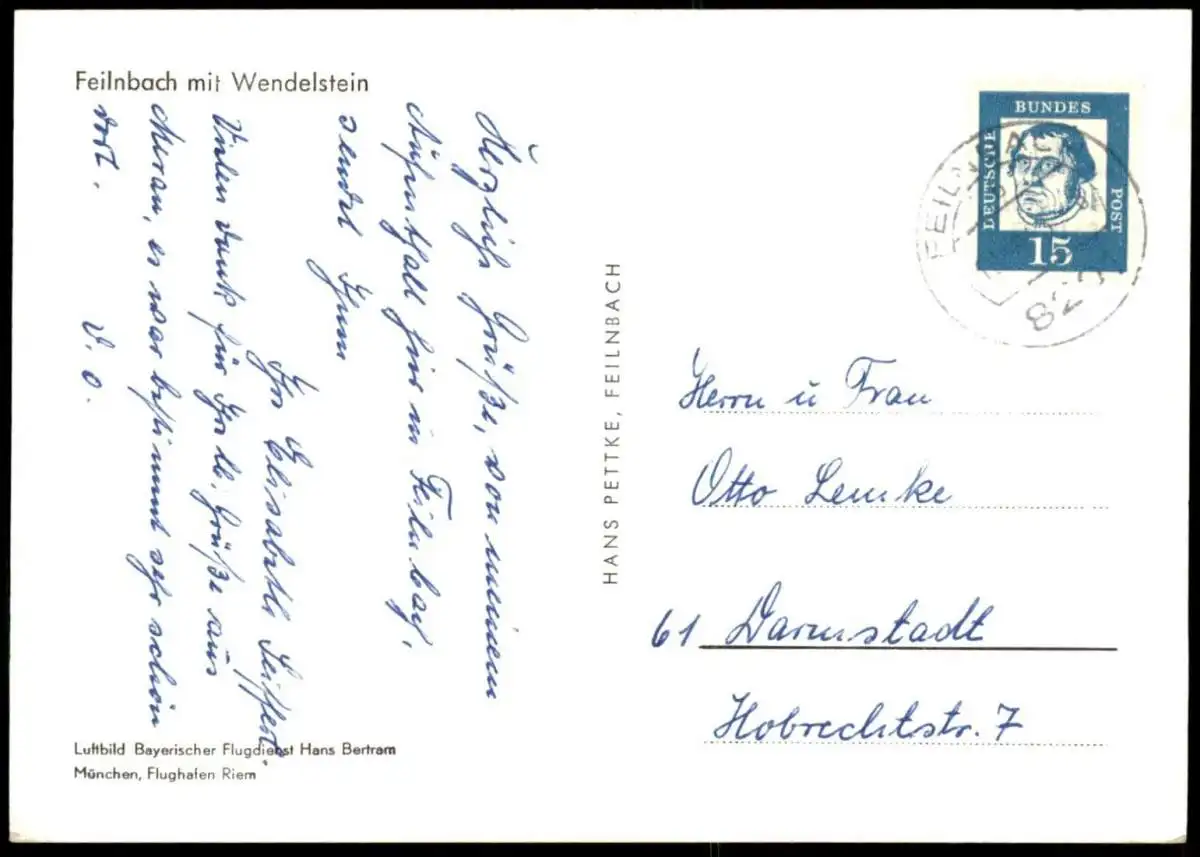 Feilnbach mit Wendelstein
Herzliche Grüße, von meinem
Aufenthalt hier in Feilnbach,
sendet Ihnen
Ihre Elisabeth Seiffert.
Vielen Dank für Ihre lb. Grüße aus
Meran, es war bestimmt sehr schön
dort.
D. O.
Luftbild Bayerischer Flugdienst Hans Bertram
München, Flughafen Riem
HANS PETTKE, FEILNBACH
DEUTSCHE
BUNDES
POST
15
FEILNBACH
Herrn u Frau
Otto Lemke
61 Darmstadt
Hobrechtstr. 7